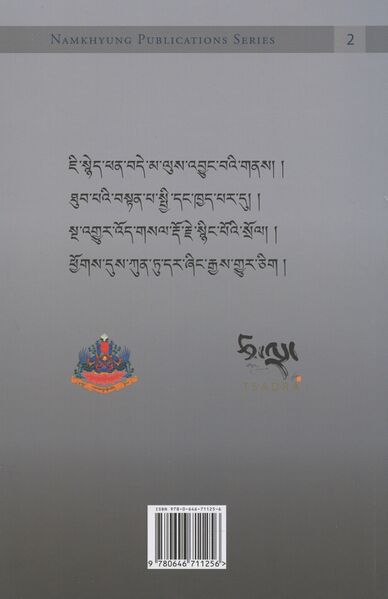 NAMKHYUNG PUBLICATIONS SERIES 2
ཇི་སྙེད་ཕན་བདེ་མ་ལུས་འབྱུང་བའི་གནས། །
ཐུབ་པའི་བསྟན་པ་སྤྱི་དང་ཁྱད་པར་དུ། །
སྔ་འགྱུར་འོད་གསལ་རྡོ་རྗེ་སྙིང་པོའི་སྲོལ། །
ཕྱོགས་དུས་ཀུན་ཏུ་དར་ཞིང་རྒྱས་གྱུར་ཅིག །
TSADRA
ISBN 978-0-646-71125-6
9 780646 711256 >